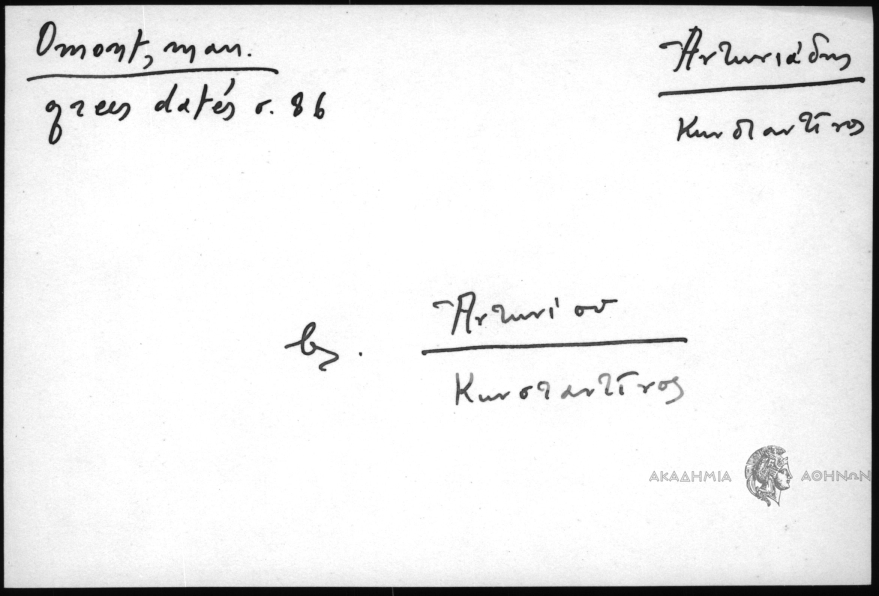 Omont, man.
grecs datés σ. 86
Ἀντωνιάδης
Κωνσταντῖνος
βλ.
Ἀντωνίου
Κωνσταντῖνος
ΑΚΑΔΗΜΙΑ ΑΘΗΝΩΝ